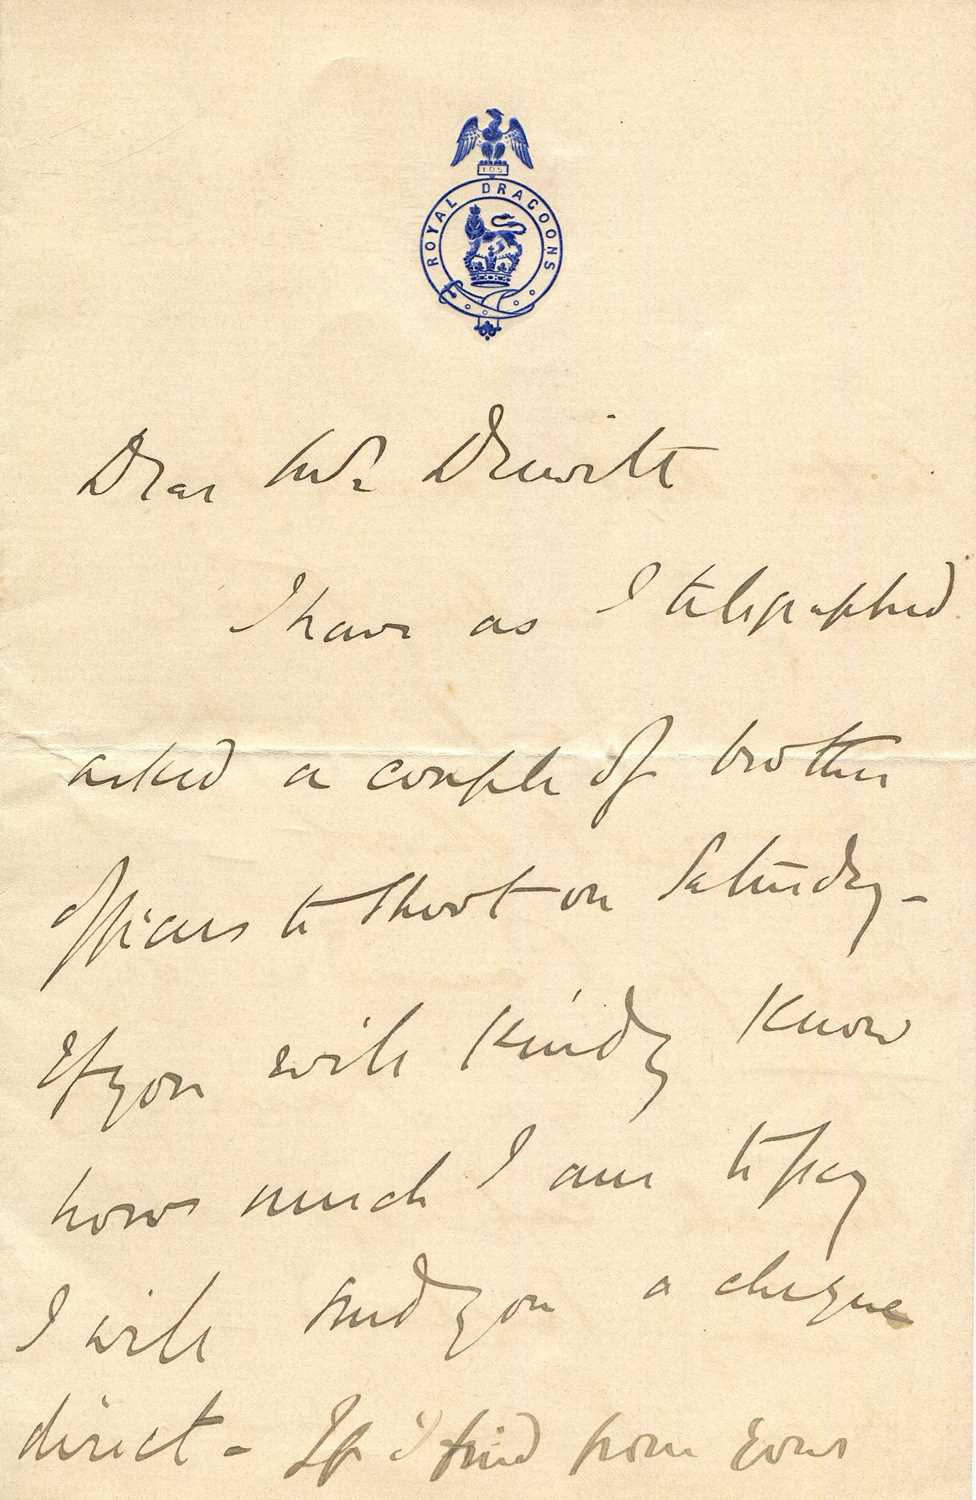 ROYAL DRAGOONS
Dear Mr Drewitt
I have as I telegraphed
asked a couple of brother
officers to shoot on Saturday -
If you will kindly know
how much I am to pay
I will send you a cheque
direct - If I find from your